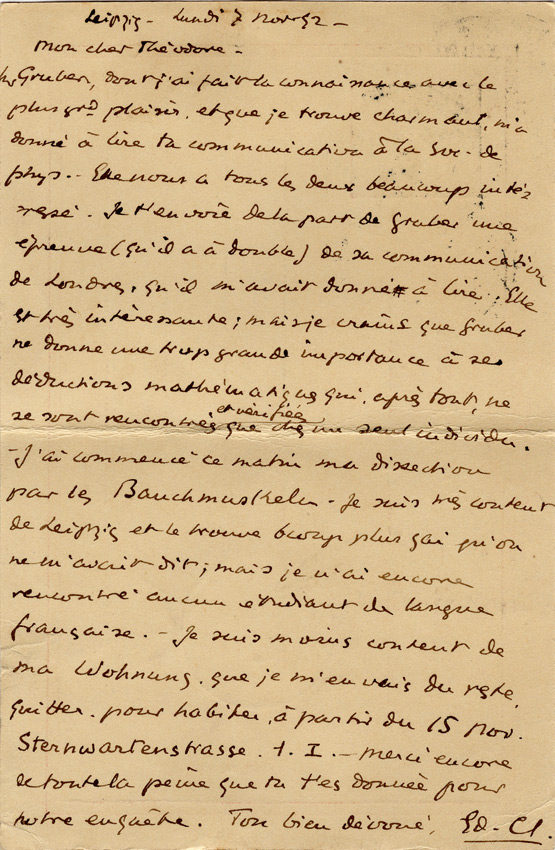 Leipzig - Lundi 7 Nov. 92 -
Mon cher Théodore -
Gruber, dont j'ai fait la connaissance avec le
plus grd plaisir, et que je trouve charmant, m'a
donné à lire ta communication à la Soc. de
phys. - Elle nous a tous les deux beaucoup inté-
ressé. Je t'envoie de la part de Gruber une
épreuve (qu'il a à double) de sa communication
de Londres, qu'il m'avait donné à lire. Elle
est très intéressante; mais je crains que Gruber
ne donne une trop grande importance à ses
déductions mathématiques qui, après tout, ne
et vérifiées
se sont rencontrées que chez un seul individu.
- J'ai commencé ce matin ma dissection
par les Bauchmuskeln - Je suis très content
de Leipzig et le trouve bcoup plus gai qu'on
ne m'avait dit; mais je n'ai encore
rencontré aucun étudiant de langue
française. - Je suis moins content de
ma Wohnung, que je m'en vais du reste,
quitter, pour habiter, à partir du 15 Nov.
Sternwartenstrasse. I. - Merci encore
de toute la peine que tu t'es donnée pour
notre enquête. Ton bien dévoué, Ed. Cl.